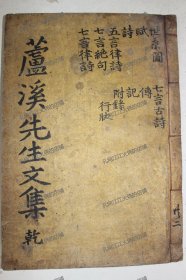 世系圖
賦
詩
五言律詩
七言絕句
七言律詩
七言古詩
傳
記
附錄
行狀
蘆溪先生文集 乾
共二